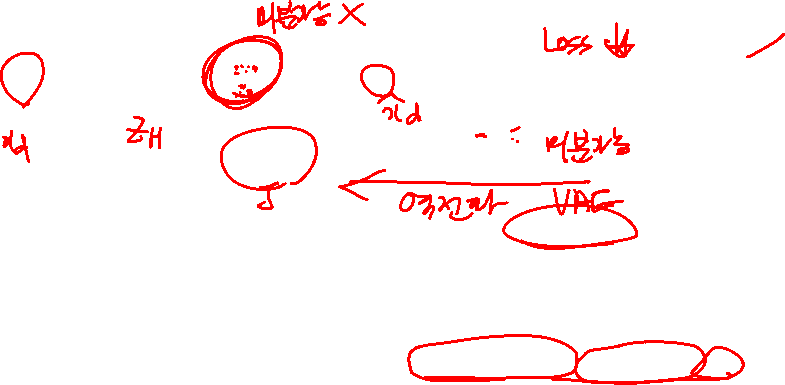 미분가능 X
Loss ↓
x_d
Z_H
x̂_d
미분가능
역전파
VAE